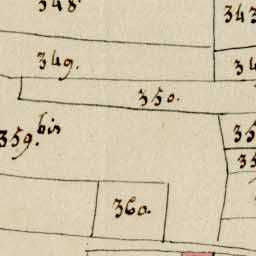 348.
343
349.
34
350.
35
359. bis
35
360.